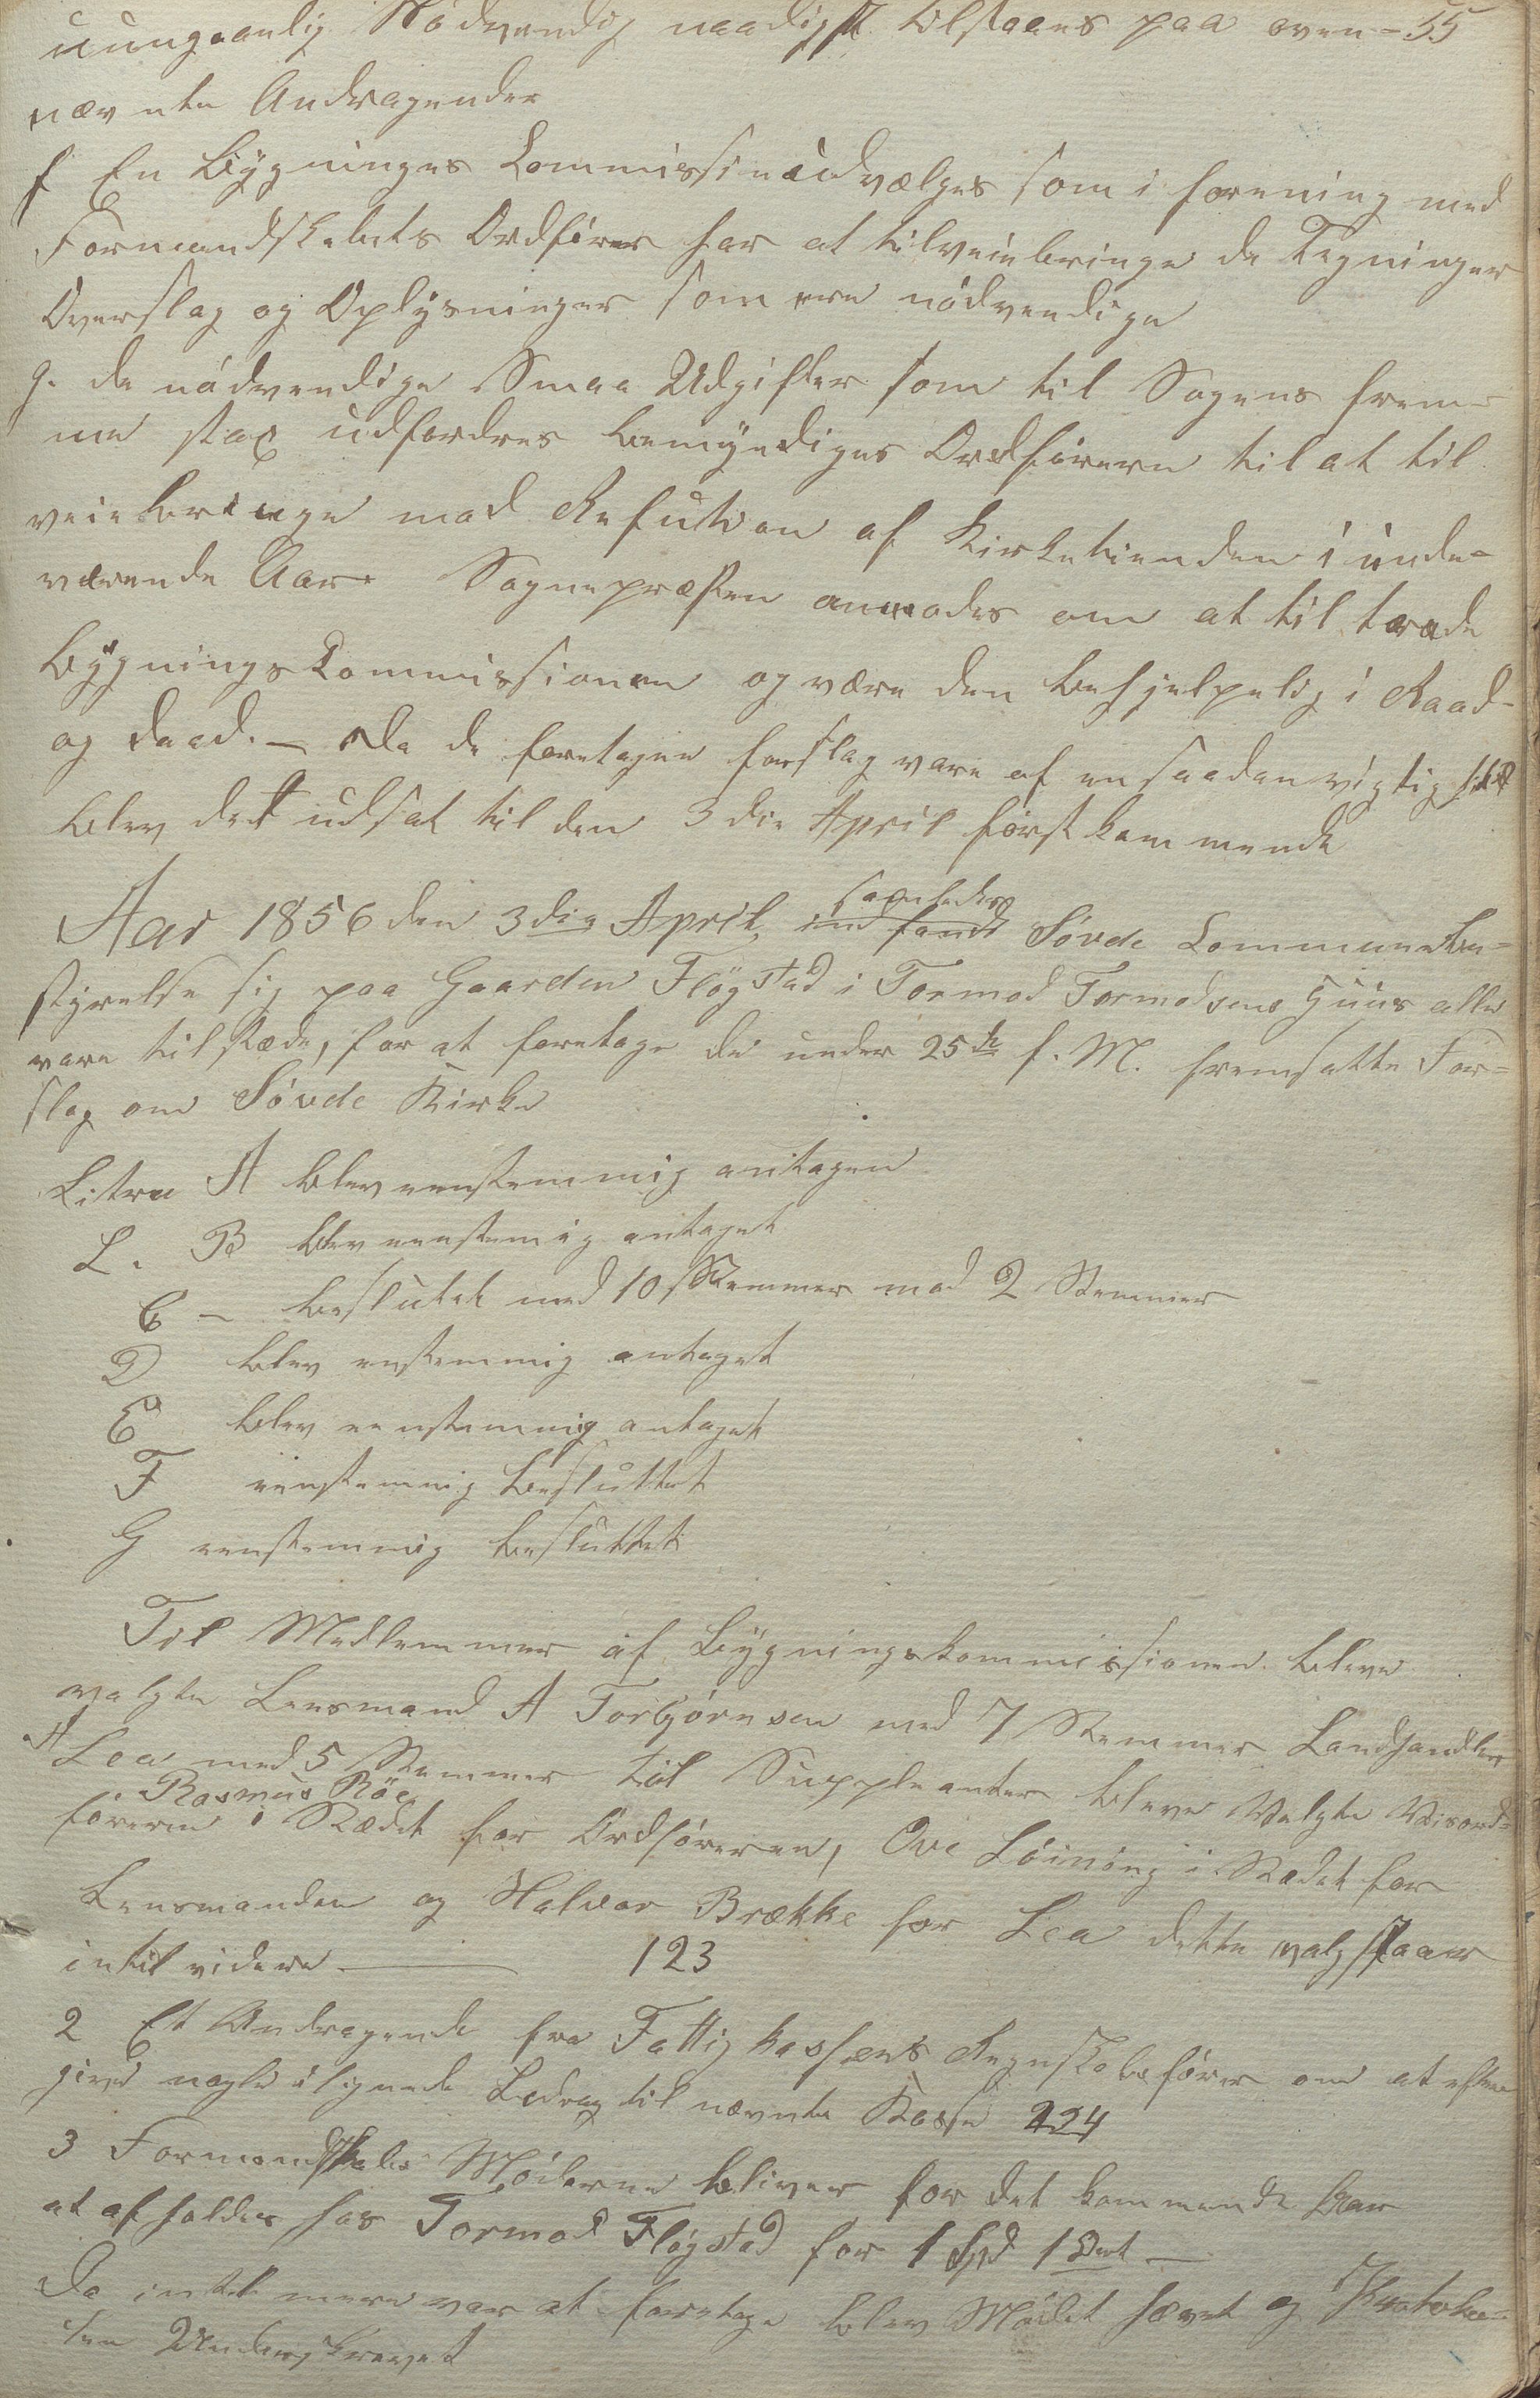 uungaanlig Nødvendig naadigst tilstaaes paa oven- 55
nævnte Andragender
f En Bygnings Commission udvælges som i forening med
Formandskabets Ordfører har at tilveiebringe de Tegninger
Overslag og Oplysninger som ere nødvendige
g. de nødvendige Smaa Udgifter som til Sagens frem-
me strax udfordres bemyndiges Ordføreren til at til
veiebringe mod Refution af Kirketienden i inde-
værende Aar. Sognepræsten anmodes om at tiltræde
Bygnings Commissionen og være den behjelpelig i Raad
og Daad. — Da de foretagne forslag vare af en saadan vigtighed
blev det udsat til den 3die April førstkommende
samledes
Aar 1856 den 3die April indfandt Søvde Communebe-
styrelse sig paa Gaarden Fløgstad i Tormod Tormodsens Huus alle
vare tilstæde, for at foretage de under 25de f. M. fremsatte For-
slag om Søvde Kirke
Litra A blev eenstemmig antagen
L. B blev eenstemig antaget
C — besluttet med 10 Stemmer mod 2 Stemmer
D blev enstemmig antaget
E blev eenstemmig antaget
F eenstemmig besluttet
G eenstemmig besluttet
Til Medlemmer af Bygningskommissionen bleve
valgte Lensmand A Torbjørnsen med 7 Stemmer Landhandler
A Lea med 5 Stemmer til Suppleanter bleve Valgte Viseord-
Rasmus Röe
føreren i Stædet for Ordføreren, Ove Löining i Stædet for
Lensmanden og Halvor Brække for Lea dette valg staaer
intil videre — 123
2 Et Andragende fra Fattigkassens Regnskabsfører om at efter
give nogle ulignede Bedrag til nævnte Kasse 124
3 Formandskabs Møderne bliver for det kommende Aar
at afholdes hos Tormod Fløgstad for 1 Spd 1 Ort —
Da intet mere var at foretage blev Mødet hævet og Protokol-
len Underskrevet